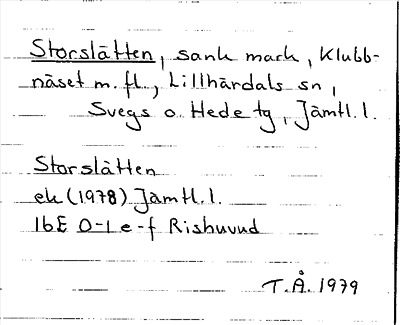 Storslåtten, sank mark, Klubb-
näset m. fl., Lillhärdals sn,
Svegs o Hede tg, Jämtl. l.
Storslåtten
ek (1978) Jämtl. l.
16E 0-1 e-f Risbuvud
T.Å. 1979